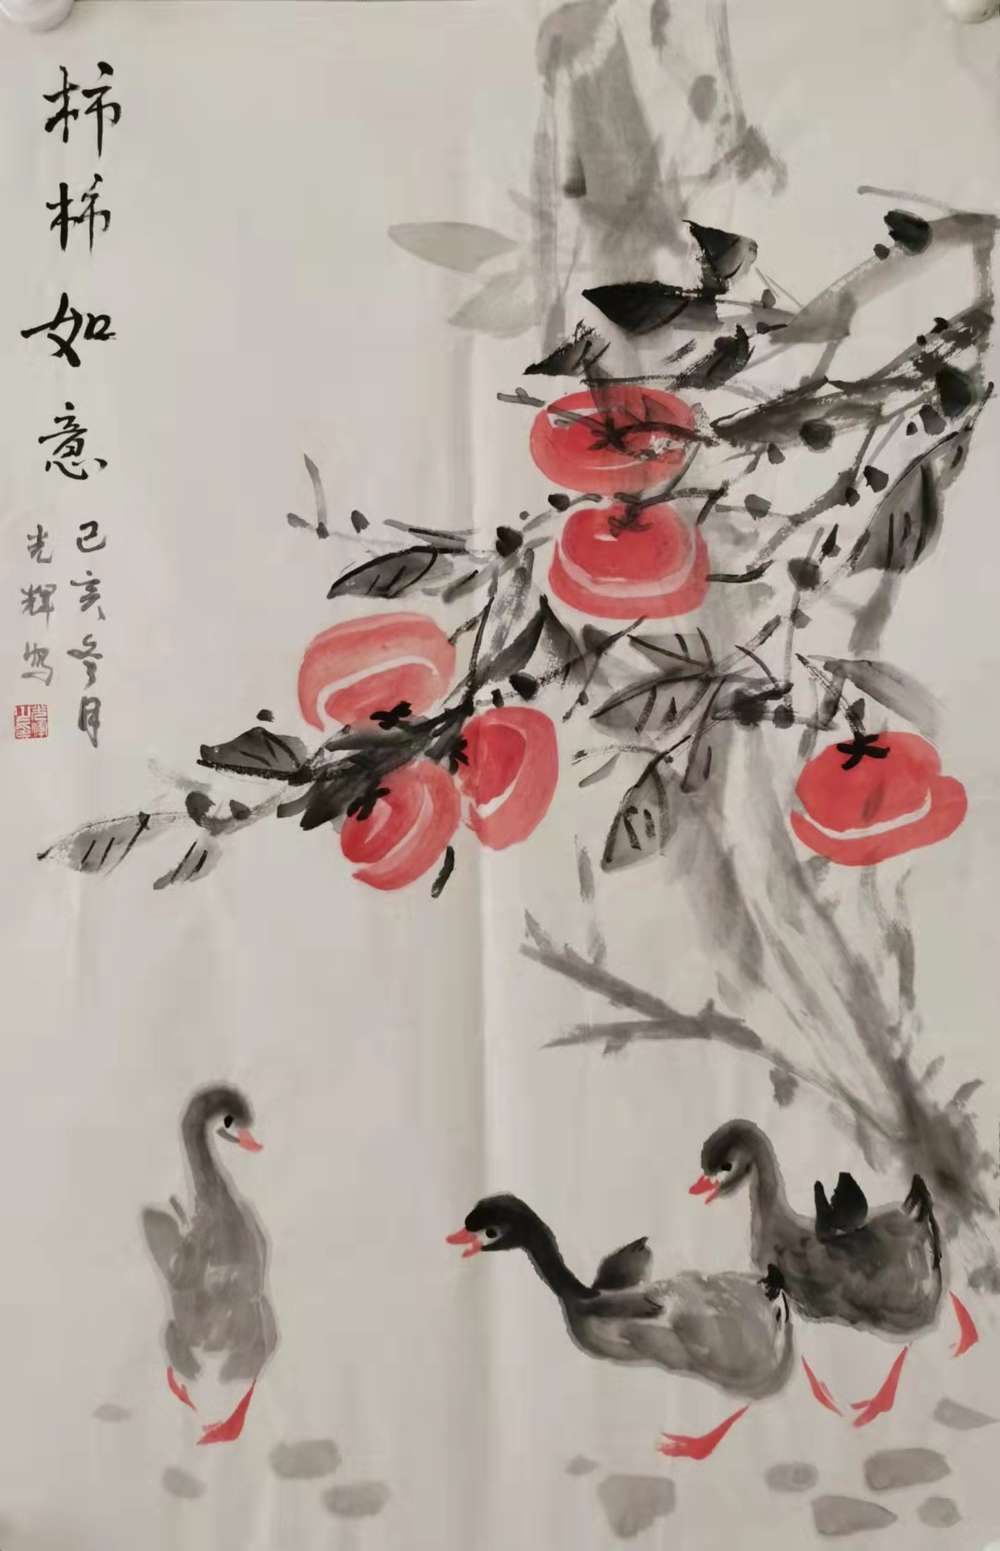 柿柿如意
己亥冬月
光輝写